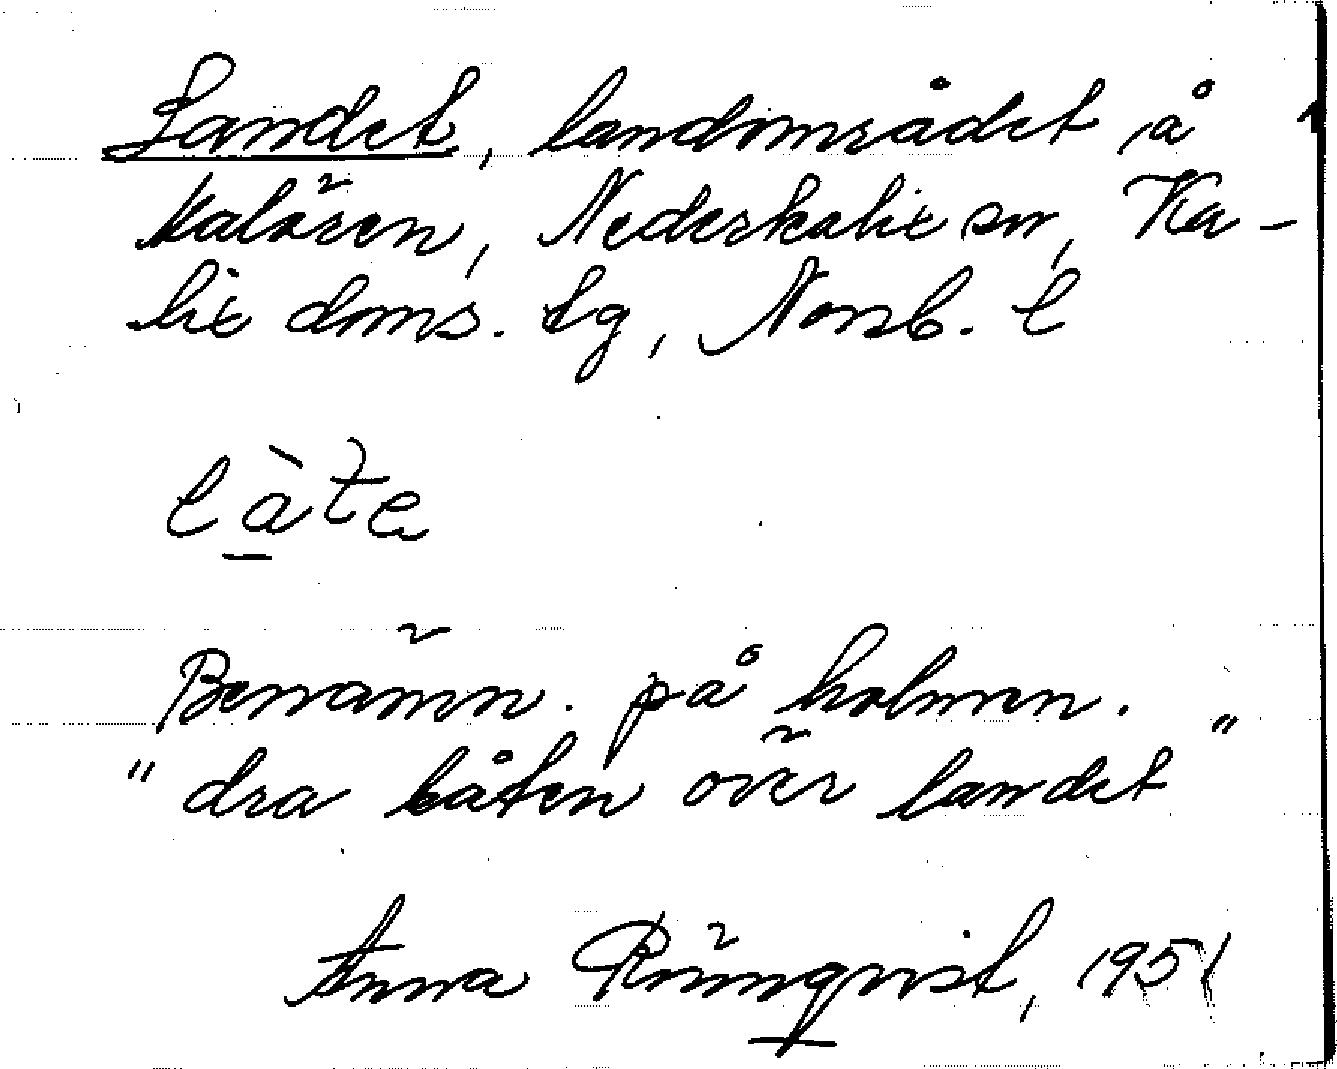 Landet, landområdet å
Kalören, Nederkalix sn, Ka-
lix doms. tg, Norrb. l
làte
Benämn. på holmen.
"dra båten över landet"
Anna Rönnqvist, 1951